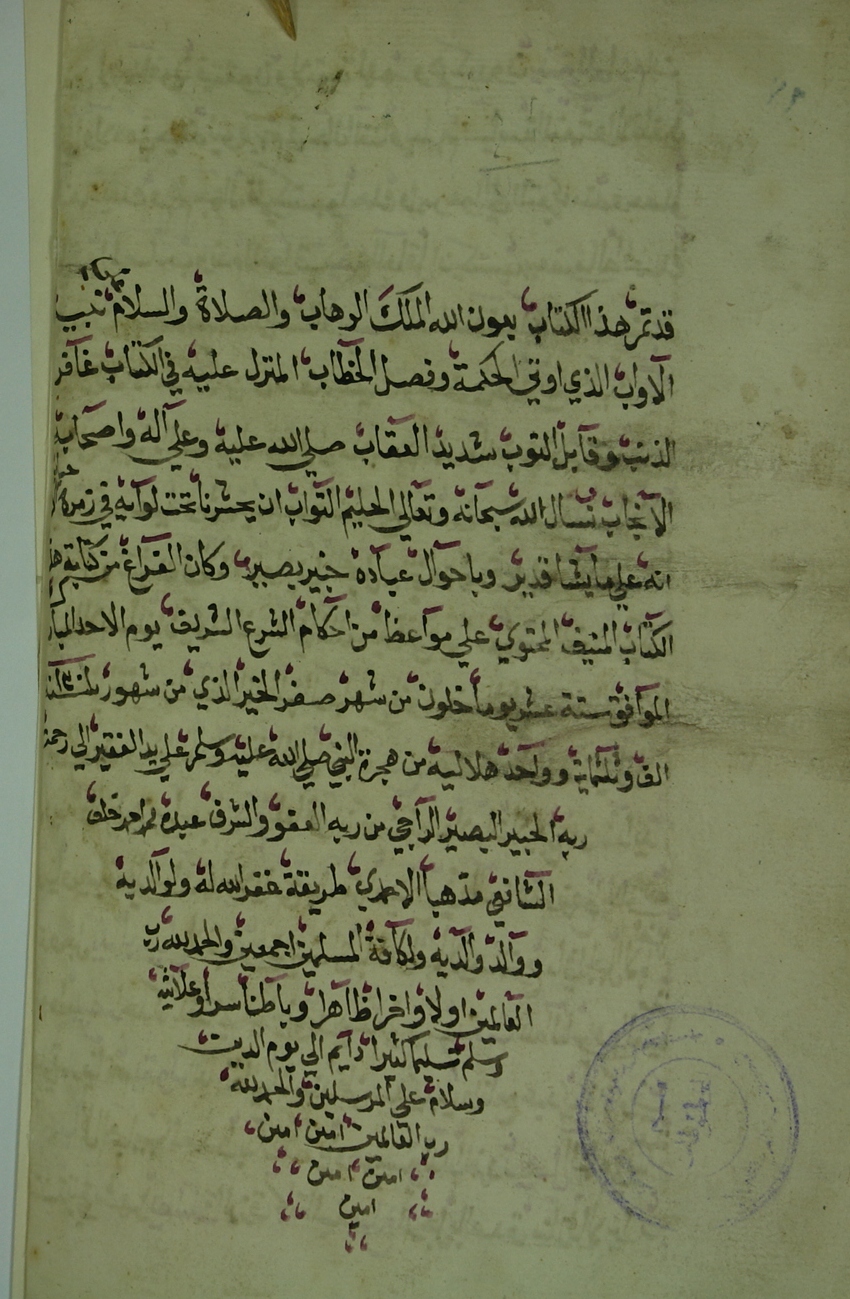 قد تم هذا الكتاب بعون الله الملك الوهاب والصلاة والسلام نبيه
الاواب الذي اوتي الحكمة وفصل الخطاب المنزل عليه في الكتاب غافر
الذنب وقابل التوب شديد العقاب صلي الله عليه وعلي آله واصحابه
الانجاب نسال الله سبحانه وتعالي الحليم التواب ان يحشرنا تحت لوآيه في زمرة
انه علي ما يشا قدير وباحوال عباده خبير بصير وكان الفراغ من كتابة هذا
الكتاب المنيف المحتوي علي مواعظا من احكام الشرع الشريف يوم الاحد المبارك
الموافق ستة عشر يوما خلون من شهر صفر الخير الذي من شهور
الف وثلثماية وواحد هلالية من هجرة النبي صلي الله عليه وسلم علي يد الفقير الي رحمة
ربه الخبير البصير الراجي من ربه العفو والشرف عبده محمد احمد خلف
الشافعي مذهبا الاحمدي طريقة غفر الله له ولوالديه
ووالد والديه ولكافة المسلمين اجمعين والحمد لله رب
العالمين اولا واخرا ظاهرا وباطنا سرا وعلانيه
وسلم تسليما كثيرا دايم الي يوم الدين
وسلام علي المرسلين والحمد لله
رب العالمين امين امين
امين امين
امين